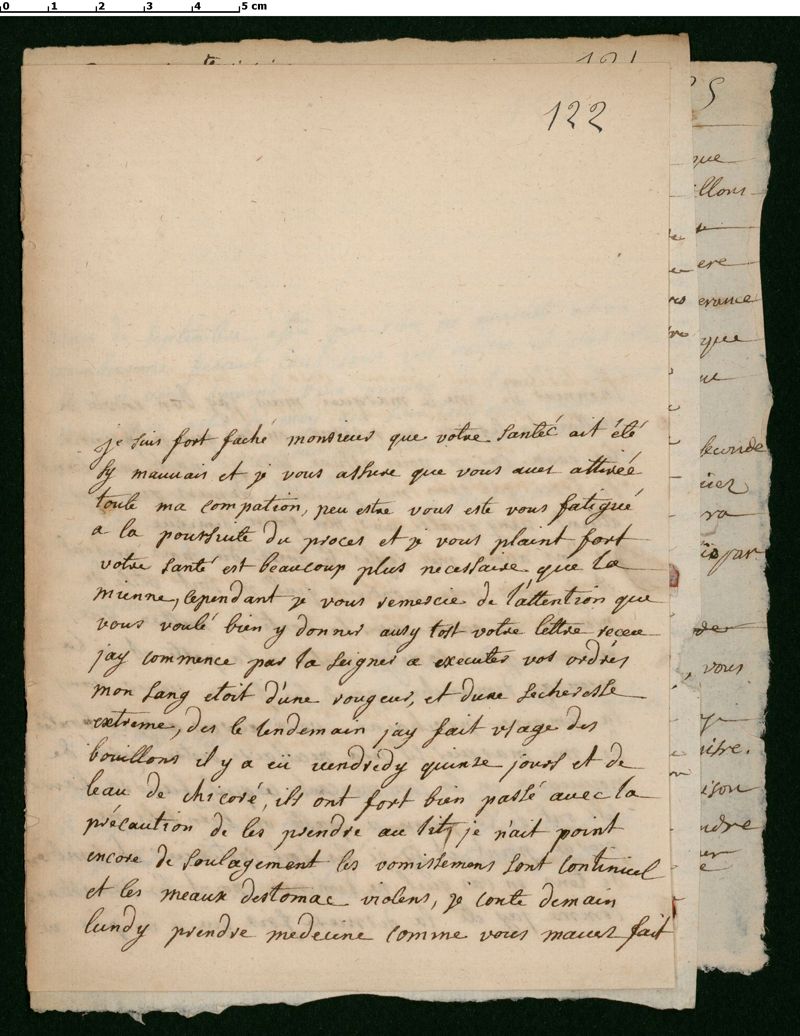 0 1 2 3 4 5 cm
122
je suis fort faché monsieur que votre santéé ait été
sy mauvais et je vous assure que vous aves attireé
toute ma compation, peu estre vous este vous fatigué
a la poursuite du proces et je vous plaint fort
votre santé est beaucoup plus necessaire que la
mienne, cependant je vous remercie de l'attention que
vous voulé bien y donner ausy tost votre lettre receu
jay commence par la seignee a executer vos ordrés
mon sang etoit d'une rougeur, et dune secheresse
extreme, des le lendemain jay fait usage des
bouillons il y a eü vendredy quinze jours et de
leau de chicoré, ils ont fort bien passé avec la
précaution de les prendre au lit, je n'ait point
encore de soulagement les vomissemens sont continuel
et les meaux destomac violens, je conte demain
lundy prendre medecine comme vous maves fait
121
que
illons
ere
erance
que
ue
seconde
vous
ison
ndre